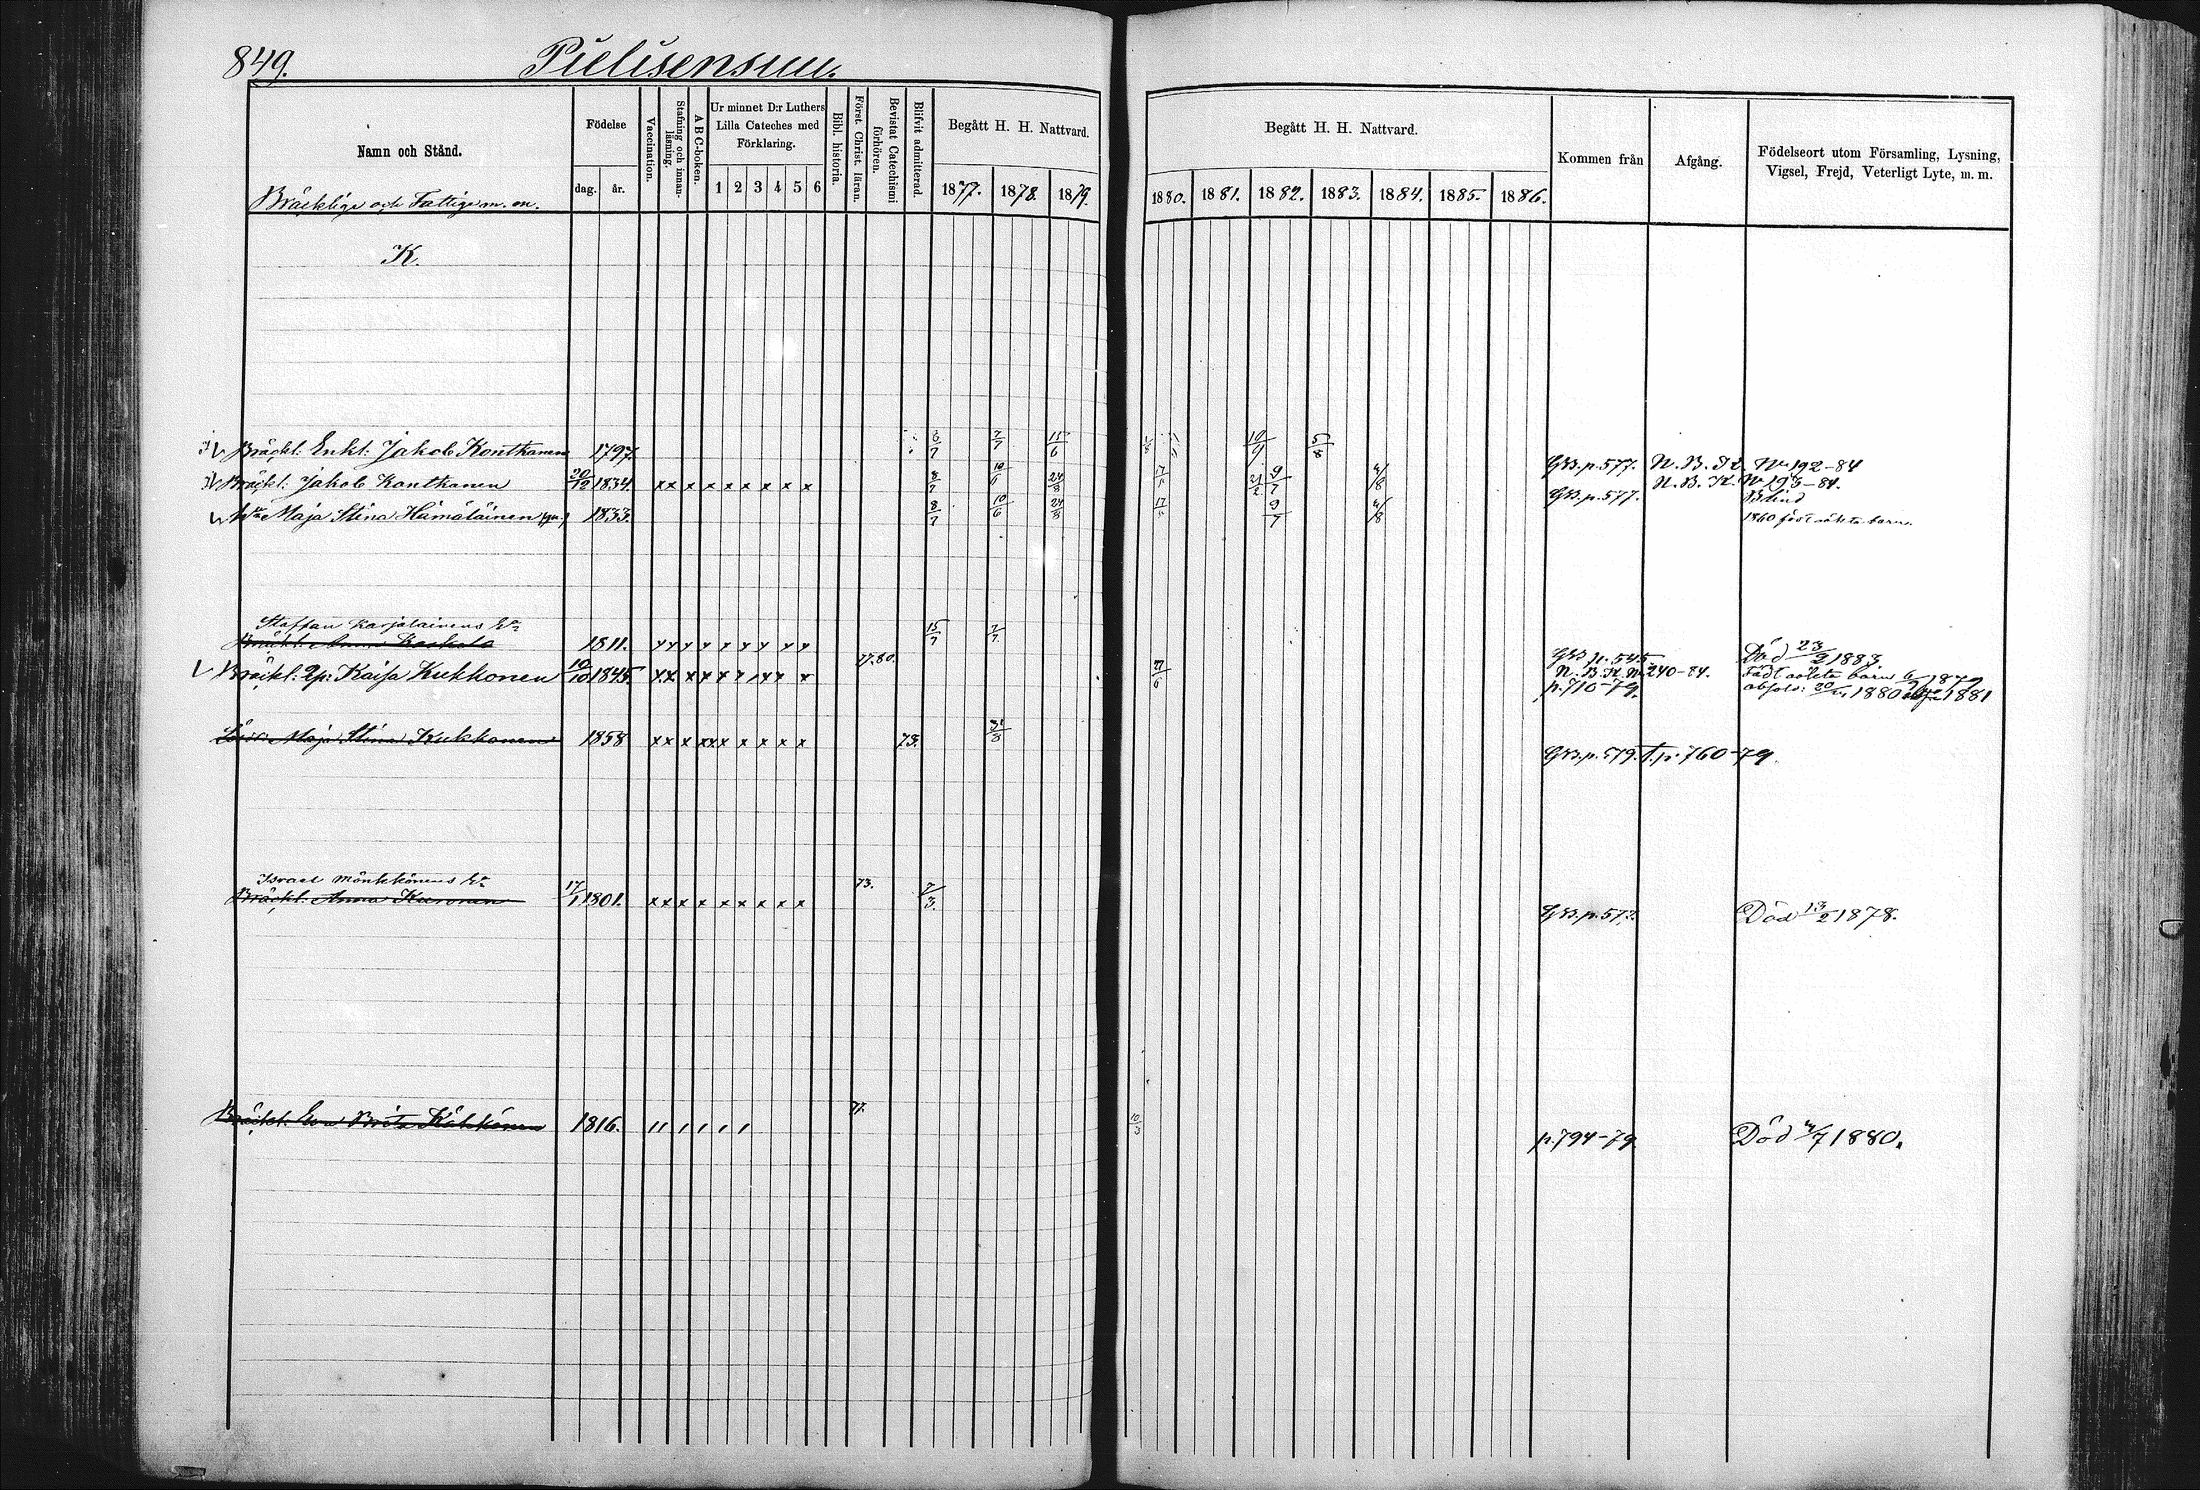 849. Pielisensuu.
Namn och Stånd.
Bräcklige och Fattige m. m.
Födelse
dag. år.
Vaccination.
Stafning och innanläsning.
A B C-boken.
Ur minnet D:r Luthers
Lilla Cateches med
Förklaring.
1 2 3 4 5 6
Bibl. historia.
Först. Christ. läran.
Bevistat Catechismi förhören.
Blifvit admitterad.
Begått H. H. Nattvard.
1877. 1878. 1879.
Begått H. H. Nattvard.
1880. 1881. 1882. 1883. 1884. 1885. 1886.
Kommen från
Afgång.
Födelseort utom Församling, Lysning,
Vigsel, Frejd, Veterligt Lyte, m. m.
K.
Bräckl: Enkl: Jakob Kontkanen 1797. 6/7 7/7 15/6 10/9 5/8 GB. p. 577. N. B. K. No 192-84
Bräckl: Jakob Kontkanen 20/12 1834. x x x x x x x x x 8/7 10/6 24/8 9/7 4/8 GB. p. 577. N. B. K. No 193-84. Blind
Maja Stina Hämäläinen 1833. 8/7 10/6 24/8 17 9/7 4/8 1860 född oäkta barn.
Staffan Karjalainens
Bräckl: Anna Kaskela 1811. x x x x x x x x x 15/7 7/7 GB p. 545 Död 23/2 1883
Bräckl: Kaisa Kukkonen 10/10 1845 77.80. N. B. K. No 240-84. Född oäkta barn 1879
p. 710-79. absolv: 1880 1881
Maja Stina Kukkonen 1858 x x x x x x x x x 73. 31/8 GB. p. 579. T. p. 760-79.
Israel Mönkkönens
Bräckl: Anna Kuronen 17/1 1801. x x x x x x x x x 73. 7/3. GB. p. 573. Död 13/2 1878.
Bräckl: Eva Brita Kähkönen 1816. 77. 10/3 p. 794-79. Död 4/7 1880.